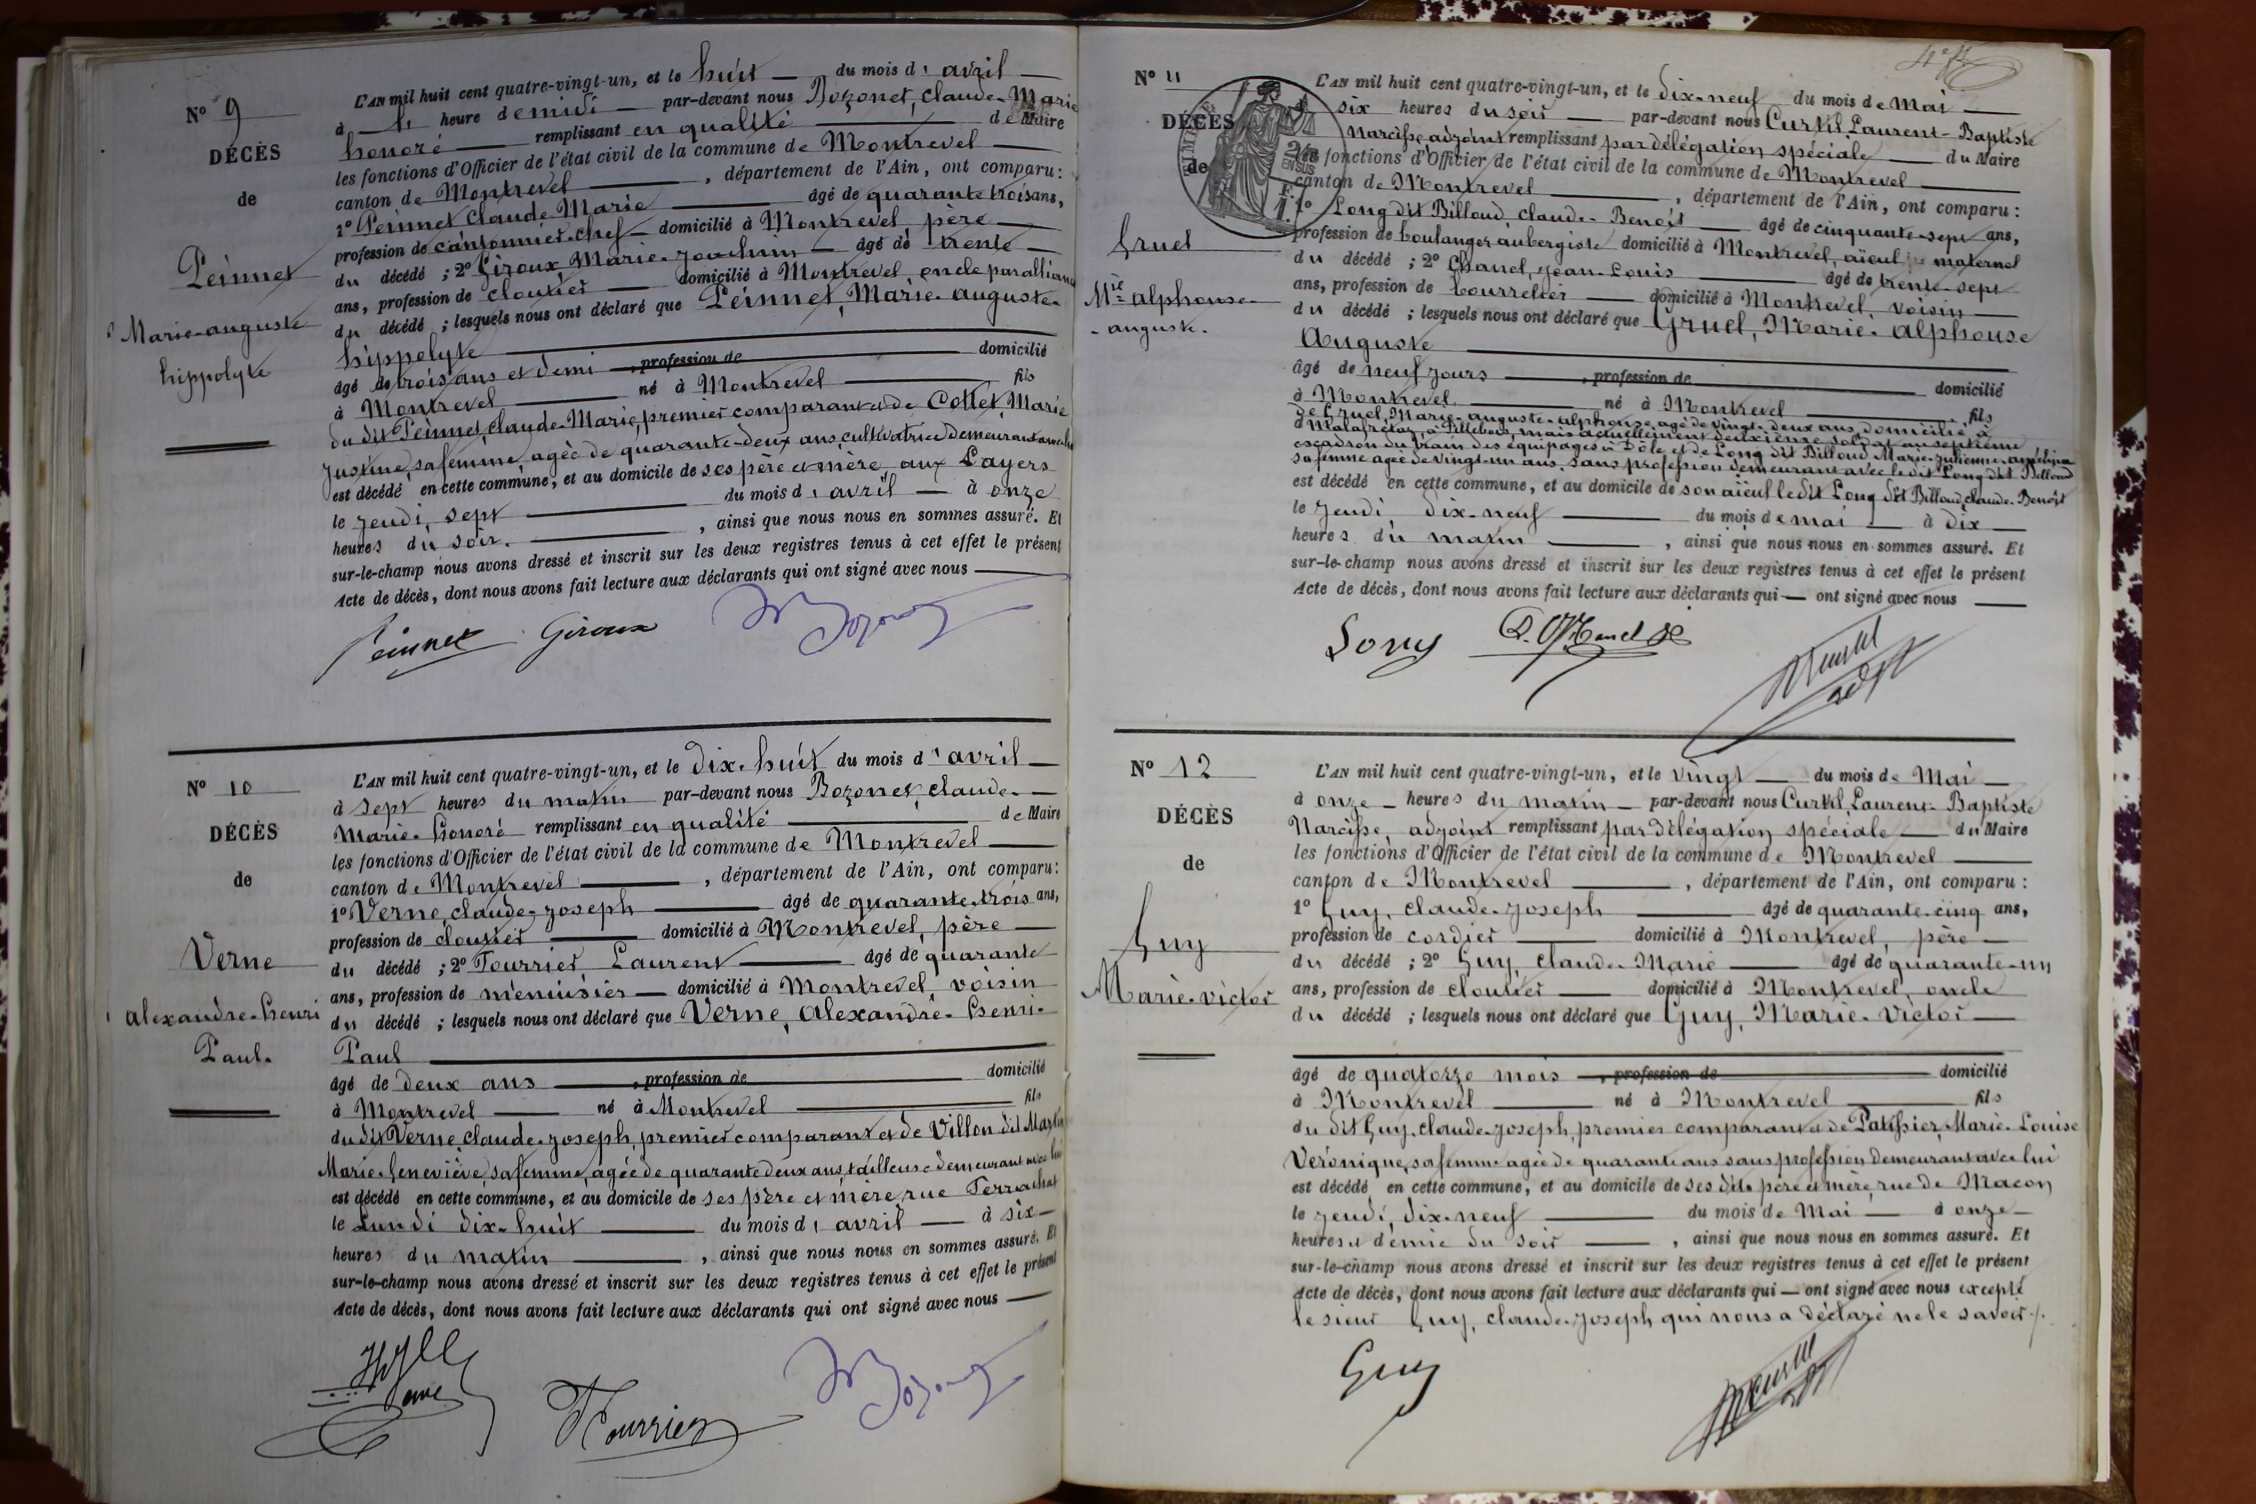 N° 9
DÉCÈS
de
Peinnet
Marie-auguste
hippolyte
L'AN mil huit cent quatre-vingt-un, et le huit du mois d'avril
à heure de midi par-devant nous Bozonet, claude-Marie
honoré remplissant en qualité de Maire
les fonctions d'Officier de l'état civil de la commune de Montrevel
canton de Montrevel, département de l'Ain, ont comparu:
1° Peinnet Claude Marie âgé de quarante trois ans,
profession de cantonnier-chef domicilié à Montrevel, père
du décédé ; 2° Giroux Marie-joachim âgé de trente
ans, profession de cloutier domicilié à Montrevel, oncle par alliance
du décédé ; lesquels nous ont déclaré que Peinnet, Marie-auguste-
hippolyte
âgé de trois ans et demi, profession de domicilié
à Montrevel né à Montrevel fils
du dit Peinnet, claude-Marie, premier comparant et de Collet, Marie
justine, sa femme, agée de quarante-deux ans, cultivatrice demeurant avec lui
est décédé en cette commune, et au domicile de ses père et mère, aux Layers
le jeudi, sept du mois d'avril à onze
heures du soir, ainsi que nous nous en sommes assuré. Et
sur-le-champ nous avons dressé et inscrit sur les deux registres tenus à cet effet le présent
Acte de décès, dont nous avons fait lecture aux déclarants qui ont signé avec nous
Peinnet Giroux Bozonet
N° 10
DÉCÈS
de
Verne
alexandre-henri
Paul.
L'AN mil huit cent quatre-vingt-un, et le dix-huit du mois d'avril
à sept heures du matin par-devant nous Bozonet, claude-
Marie-honoré remplissant en qualité de Maire
les fonctions d'Officier de l'état civil de la commune de Montrevel
canton de Montrevel, département de l'Ain, ont comparu:
1° Verne, claude-joseph âgé de quarante-trois ans,
profession de cloutier domicilié à Montrevel, père
du décédé ; 2° Tourrier, Laurent âgé de quarante
ans, profession de menuisier domicilié à Montrevel, voisin
du décédé ; lesquels nous ont déclaré que Verne, alexandre-henri-
Paul
âgé de deux ans, profession de domicilié
à Montrevel né à Montrevel fils
du dit Verne, claude-joseph, premier comparant et de Villon dit Martin
Marie-Geneviève, sa femme, agée de quarante deux ans, tailleuse demeurant avec lui
est décédé en cette commune, et au domicile de ses père et mère, rue Ferrachat
le Lundi dix-huit du mois d'avril à six
heures du matin, ainsi que nous nous en sommes assuré. Et
sur-le-champ nous avons dressé et inscrit sur les deux registres tenus à cet effet le présent
Acte de décès, dont nous avons fait lecture aux déclarants qui ont signé avec nous
Verne Tourrier Bozonet
N° 11
DÉCÈS
de
Gruel
Mie alphonse-
auguste.
L'AN mil huit cent quatre-vingt-un, et le dix-neuf du mois de Mai
à six heures du soir par-devant nous Curtil Laurent-Baptiste
Narcisse, adjoint remplissant par délégation spéciale du Maire
les fonctions d'Officier de l'état civil de la commune de Montrevel
canton de Montrevel, département de l'Ain, ont comparu :
1° Long dit Billoud, claude-Benoît âgé de cinquante-sept ans,
profession de boulanger aubergiste domicilié à Montrevel, aïeul maternel
du décédé ; 2° Chanel, jean-Louis âgé de trente-sept
ans, profession de bourrelier domicilié à Montrevel, voisin
du décédé ; lesquels nous ont déclaré que Gruel, Marie-alphonse
Auguste
âgé de neuf jours, profession de domicilié
à Montrevel né à Montrevel fils
de Gruel, Marie-auguste-alphonse, agé de vingt-deux ans, domicilié à
Malafretaz, à Lillebas, mais actuellement deuxième soldat au septième
escadron du train des équipages à Dôle et de Long dit Billoud Marie-julienne-
sa femme agée de vingt-un ans, sans profession demeurant avec le dit Long dit Billoud
est décédé en cette commune, et au domicile de son aïeul le dit Long dit Billoud, claude-Benoît
le jeudi dix-neuf du mois de mai à dix
heures du matin, ainsi que nous nous en sommes assuré. Et
sur-le-champ nous avons dressé et inscrit sur les deux registres tenus à cet effet le présent
Acte de décès, dont nous avons fait lecture aux déclarants qui ont signé avec nous
Long Chanel
N° 12
DÉCÈS
de
Guy
Marie-victor
L'AN mil huit cent quatre-vingt-un, et le vingt du mois de Mai
à onze heures du matin par-devant nous Curtil, Laurent-Baptiste
Narcisse, adjoint remplissant par délégation spéciale du Maire
les fonctions d'Officier de l'état civil de la commune de Montrevel
canton de Montrevel, département de l'Ain, ont comparu :
1° Guy, claude-joseph âgé de quarante-cinq ans,
profession de cordier domicilié à Montrevel, père
du décédé ; 2° Guy, claude-Marie âgé de quarante-un
ans, profession de cloutier domicilié à Montrevel, oncle
du décédé ; lesquels nous ont déclaré que Guy, Marie-Victor
âgé de quatorze mois, profession de domicilié
à Montrevel né à Montrevel fils
du dit Guy, claude-joseph, premier comparant et de Patissier, Marie-Louise
Véronique, sa femme agée de quarante ans sans profession demeurant avec lui
est décédé en cette commune, et au domicile de ses dits père et mère, rue de Macon
le jeudi, dix-neuf du mois de Mai à onze
heures et demie du soir, ainsi que nous nous en sommes assuré. Et
sur-le-champ nous avons dressé et inscrit sur les deux registres tenus à cet effet le présent
Acte de décès, dont nous avons fait lecture aux déclarants qui ont signé avec nous excepté
le sieur Guy, claude-joseph qui nous a déclaré ne le savoir
Guy